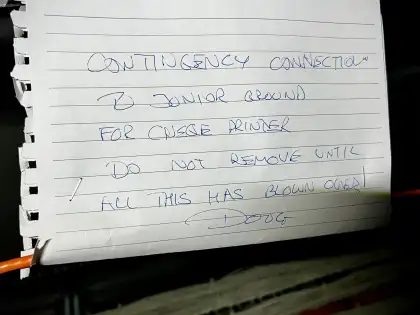 CONTINGENCY CONNECTION
TO JUNIOR GROUND
FOR CHEQUE PRINTER
DO NOT REMOVE UNTIL
ALL THIS HAS BLOWN OVER!
DOUG